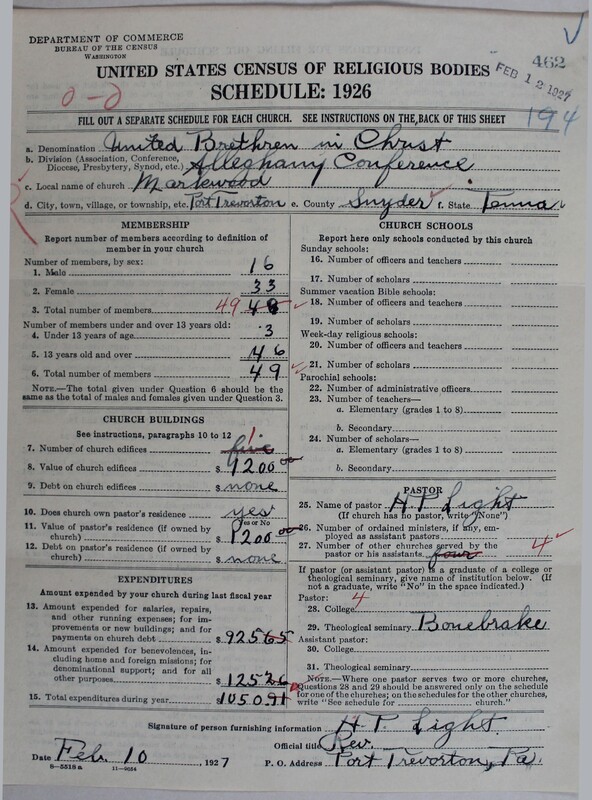 DEPARTMENT OF COMMERCE
BUREAU OF THE CENSUS
WASHINGTON
462
FEB 12 1927
UNITED STATES CENSUS OF RELIGIOUS BODIES
SCHEDULE: 1926
0-0
194
FILL OUT A SEPARATE SCHEDULE FOR EACH CHURCH. SEE INSTRUCTIONS ON THE BACK OF THIS SHEET
a. Denomination United Brethren in Christ
b. Division (Association, Conference, Diocese, Presbytery, Synod, etc.) Alleghany Conference
c. Local name of church Markwood
d. City, town, village, or township, etc. Port Trevorton e. County Snyder f. State Penna
MEMBERSHIP
Report number of members according to definition of
member in your church
Number of members, by sex:
1. Male 16
2. Female 33
3. Total number of members 49 48
Number of members under and over 13 years old:
4. Under 13 years of age 3
5. 13 years old and over 46
6. Total number of members 49
NOTE.—The total given under Question 6 should be
same as the total of males and females given under Question 3.
CHURCH BUILDINGS
See instructions, paragraphs 10 to 12
7. Number of church edifices five 1
8. Value of church edifices $ 9200.00
9. Debt on church edifices $ none
10. Does church own pastor's residence yes
Yes or No
11. Value of pastor's residence (if owned by
church) $ 1200.00
12. Debt on pastor's residence (if owned by
church) $ none
EXPENDITURES
Amount expended by your church during last fiscal year
13. Amount expended for salaries, repairs,
and other running expenses; for im-
provements or new buildings; and for
payments on church debt $ 925.65
14. Amount expended for benevolences, in-
cluding home and foreign missions; for
denominational support; and for all
other purposes $ 125.26
15. Total expenditures during year $ 1050.91
CHURCH SCHOOLS
Report here only schools conducted by this church
Sunday schools:
16. Number of officers and teachers
17. Number of scholars
Summer vacation Bible schools:
18. Number of officers and teachers
19. Number of scholars
Week-day religious schools:
20. Number of officers and teachers
21. Number of scholars
Parochial schools:
22. Number of administrative officers
23. Number of teachers—
a. Elementary (grades 1 to 8)
b. Secondary
24. Number of scholars—
a. Elementary (grades 1 to 8)
b. Secondary
PASTOR
25. Name of pastor H P Light
(If church has no pastor, write "None")
26. Number of ordained ministers, if any, em-
ployed as assistant pastors
27. Number of other churches served by the
pastor or his assistants four 4
If pastor (or assistant pastor) is a graduate of a college or
theological seminary, give name of institution below. (If
not a graduate, write "No" in the space indicated.)
Pastor: 4
28. College
29. Theological seminary Bonebrake
Assistant pastor:
30. College
31. Theological seminary
NOTE.—Where one pastor serves two or more churches,
Questions 28 and 29 should be answered only on the schedule
for one of the churches; on the schedules for the other churches,
write "See schedule for church."
Signature of person furnishing information H. P. Light
Official title Rev.
Date Feb. 10, 1927 P. O. Address Port Trevorton, Pa.
8—5518 a 11—9034